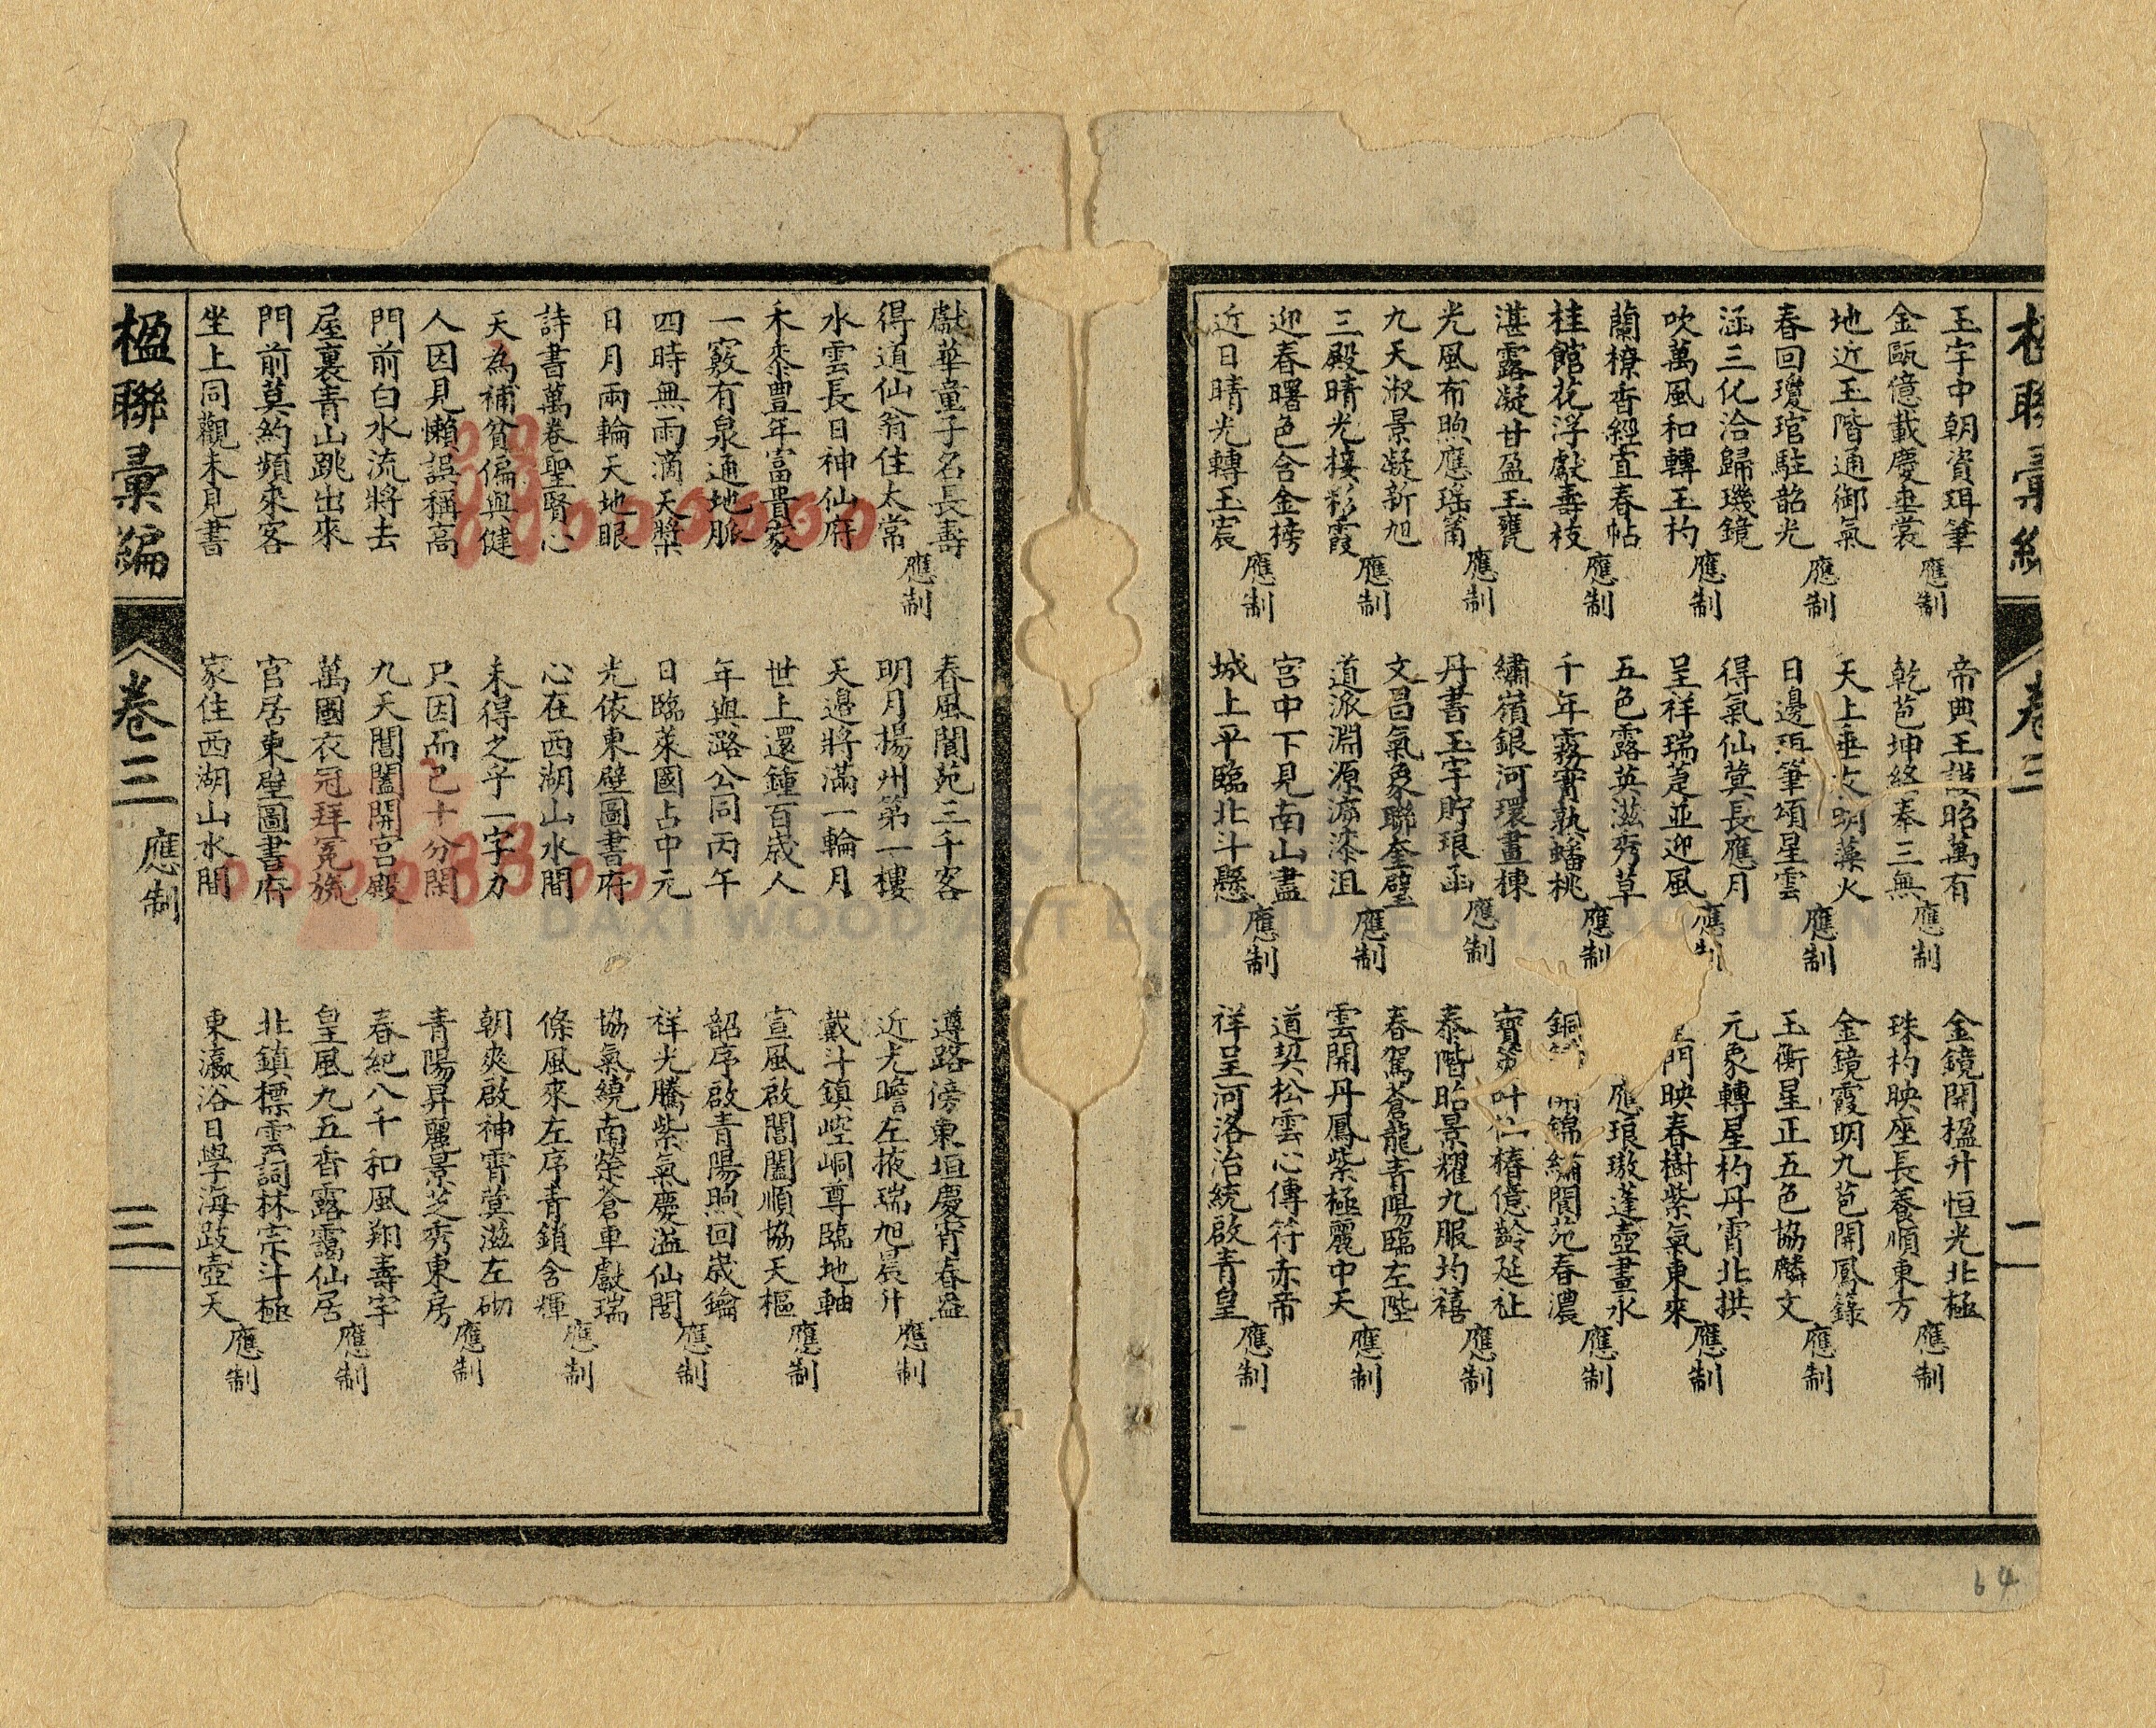 楹聯彙編
卷三
二
玉宇中朝資珥筆
金甌億載慶垂裳 應制
地近玉階通御氣
春回瓊琯駐韶光 應制
涵三化洽歸璣鏡
吹萬風和轉玉杓 應制
蘭橑香經宜春帖
桂館花浮獻壽枝 應制
湛露凝甘盈玉甕
光風布煦應瑤莆 應制
九天淑景凝新旭
三殿晴光接彩霞 應制
迎春曙色含金榜
近日晴光轉玉宸 應制
帝典王謨昭萬有
乾苞坤絡奉三無 應制
天上垂文明藻火
日邊珥筆頌星雲 應制
得氣仙蓂長應月
呈祥瑞萐並迎風 應制
五色露英滋秀草
千年霧實熟蟠桃 應制
繡嶺銀河環畫棟
丹書玉宇貯琅函 應制
文昌氣象聯奎璧
道派淵源溯漆沮 應制
宮中下見南山盡
城上平臨北斗懸 應制
金鏡開楹升恒光北極
珠杓映座長養順東方 應制
金鏡霞明九苞開鳳籙
玉衡星正五色協麟文 應制
元象轉星杓丹霄北拱
門映春樹紫氣東來 應制
應琅璈蓬壺晝永
銅開錦繡閬苑春濃 應制
寶蓂叶仁椿億齡延祉
泰階昭景耀九服均禧 應制
春駕蒼龍青陽臨左陛
雲開丹鳳紫極麗中天 應制
道契松雲心傳符赤帝
祥呈河洛治統啟青皇 應制
64
獻華童子名長壽
得道仙翁住太常 應制
水雲長日神仙府
禾黍豐年富貴家
一竅有泉通地脈
四時無雨滴天漿
日月兩輪天地眼
詩書萬卷聖賢心
天為補貧偏與健
人因見懶誤稱高
門前白水流將去
屋裏青山跳出來
門前莫約頻來客
坐上同觀未見書
春風閬苑三千客
明月揚州第一樓
天邊將滿一輪月
世上還鍾百歲人
年與潞公同丙午
日臨萊國占中元
光依東壁圖書府
心在西湖山水間
未得之乎一字力
只因而已十分閒
九天閶闔開宮殿
萬國衣冠拜冕旒
官居東壁圖書府
家住西湖山水間
遵路傍東垣慶宵春益
近光瞻左掖瑞旭晨升 應制
戴斗鎮崆峒尊臨地軸
宣風啟閶闔順協天樞 應制
韶序啟青陽煦回歲籥
祥光騰紫氣慶溢仙閣 應制
協氣繞南榮蒼車獻瑞
條風來左序青鎖含輝 應制
朝爽啟神霄蓂滋左砌
青陽昇麗景芝秀東房 應制
春紀八千和風翔壽宇
皇風九五香露靄仙居 應制
北鎮標雲詞林宗斗極
東瀛浴日學海跂壺天 應制
楹聯彙編
卷三
應制
三
DAXI WOOD ART ECOMUSEUM, TAOYUAN